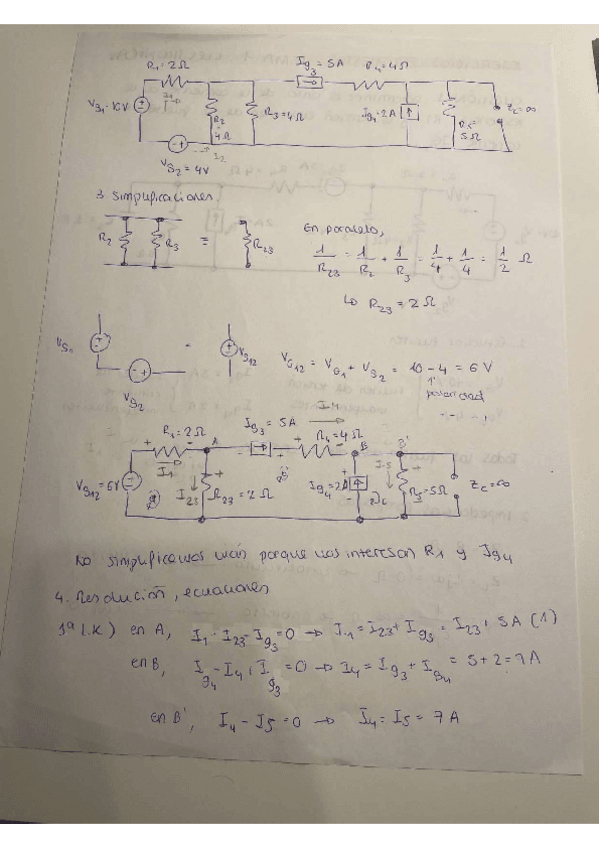 R1=2Ω
Ig3=5A
R4=4Ω
Vg1=10V
I1
R2
4Ω
R3=4Ω
Ig4=2A
R5=
5Ω
Zc=∞
I2
Vg2=4V
3. Simplificaciones.
R2
R3
=
R23
En paralelo,
1/R23 = 1/R2 + 1/R3 = 1/4 + 1/4 = 1/2 Ω
↳ R23 = 2Ω
Vg2
Vg12
VG12 = VG1 + VS2 = 10 - 4 = 6 V
↑
polaridad
R1=2Ω
A
Ig3=5A
R4=4Ω
B
B'
I1
I23
R23=2Ω
Vg12=6V
Ig4=2A
I5
R5=5Ω
Zc=∞
No simplificamos más porque nos interesan R1 y Ig4
4. Resolución, ecuaciones
1ª L.K) en A, I1-I23-Ig3=0 → I1=I23+Ig3=I23+5A (1)
en B, Ig4-I4+Ig3=0 → I4=Ig3+Ig4=5+2=7A
en B', I4-I5=0 → I4=I5=7A